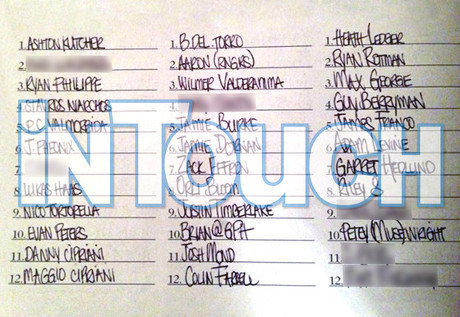 1. ASHTON KUTCHER
2.
3. RYAN PHILLIPPE
4. STAVROS NIARCHOS
5. P.C. VALMORBIDA
6. J. PHEONIX
7.
8. LUKAS HAAS
9. NICO TORTORELLA
10. EVAN PETERS
11. DANNY CIPRIANI
12. MAGGIO CIPRIANI
1. B. DEL TORRO
2. AARON (RNGRS)
3. WILMER VALDERAMA
4.
5. JAMIE BURKE
6. JAMIE DORNAN
7. ZACK EFFRON
8. ORLI BLOOM
9. JUSTIN TIMBERLAKE
10. BRIAN @ GPH
11. JOSH
12. COLIN FARRELL
1. HEATH LEDGER
2. RYAN ROTTMAN
3. MAX GEORGE
4. GUY BERRYMAN
5. JAMES FRANCO
6. ADAM LEVINE
7. GARRET HEDLUND
8.
9.
10. PETEY (MUSE) WRIGHT
11.
12.
INTouch